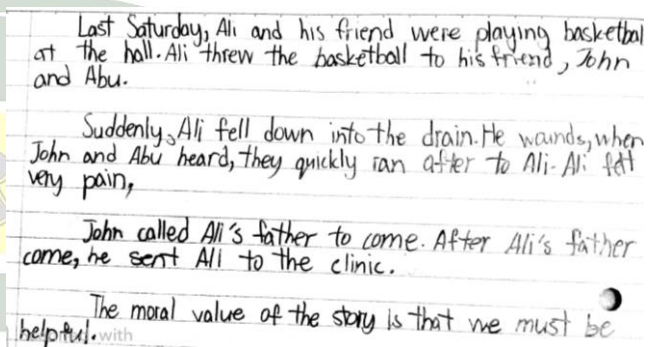 Last Saturday, Ali and his friend were playing basketbal
at the hall. Ali threw the basketball to his friend, John
and Abu.
Suddenly, Ali fell down into the drain. He waunds, when
John and Abu heard, they quickly ran after to Ali. Ali felt
very pain,
John called Ali's father to come. After Ali's father
come, he sent Ali to the clinic.
The moral value of the story is that we must be
helpful. with